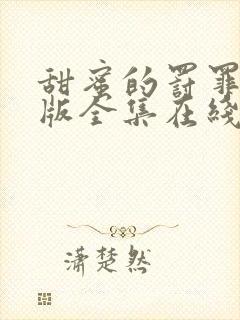 甜蜜的罚罪
版全集在线
潇楚然